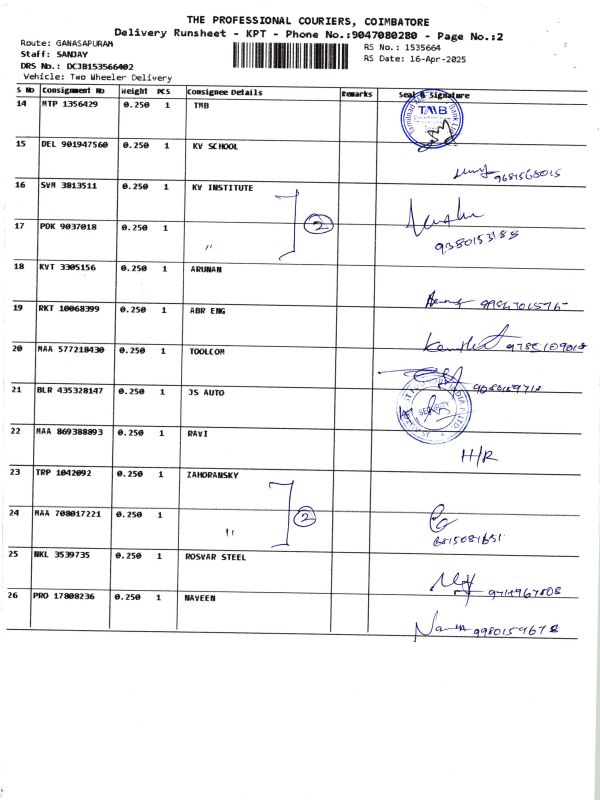 THE PROFESSIONAL COURIERS, COIMBATORE
Delivery Runsheet - KPT - Phone No.:9047080280 - Page No.:2
Route: GANASAPURAM RS No.: 1535664
Staff: SANJAY RS Date: 16-Apr-2025
DRS No.: DCJB153566402
Vehicle: Two Wheeler Delivery
S No Consignment No Weight PCS Consignee Details Remarks Seal & Signature
14 MTP 1356429 0.250 1 TMB TMB
15 DEL 901947560 0.250 1 KV SCHOOL
9681568015
16 SVM 3813511 0.250 1 KV INSTITUTE
2
17 PDK 9037018 0.250 1 "
9380153188
18 KVT 3305156 0.250 1 ARUNAN
19 RKT 10068399 0.250 1 ABR ENG
20 MAA 577218430 0.250 1 TOOLCOM
21 BLR 435328147 0.250 1 JS AUTO
22 MAA 869388893 0.250 1 RAVI
H/R
23 TRP 1042092 0.250 1 ZAHORANSKY
2
24 MAA 708017221 0.250 1 "
25 NKL 3539735 0.250 1 ROSVAR STEEL
26 PRO 17808236 0.250 1 NAVEEN
9980159678